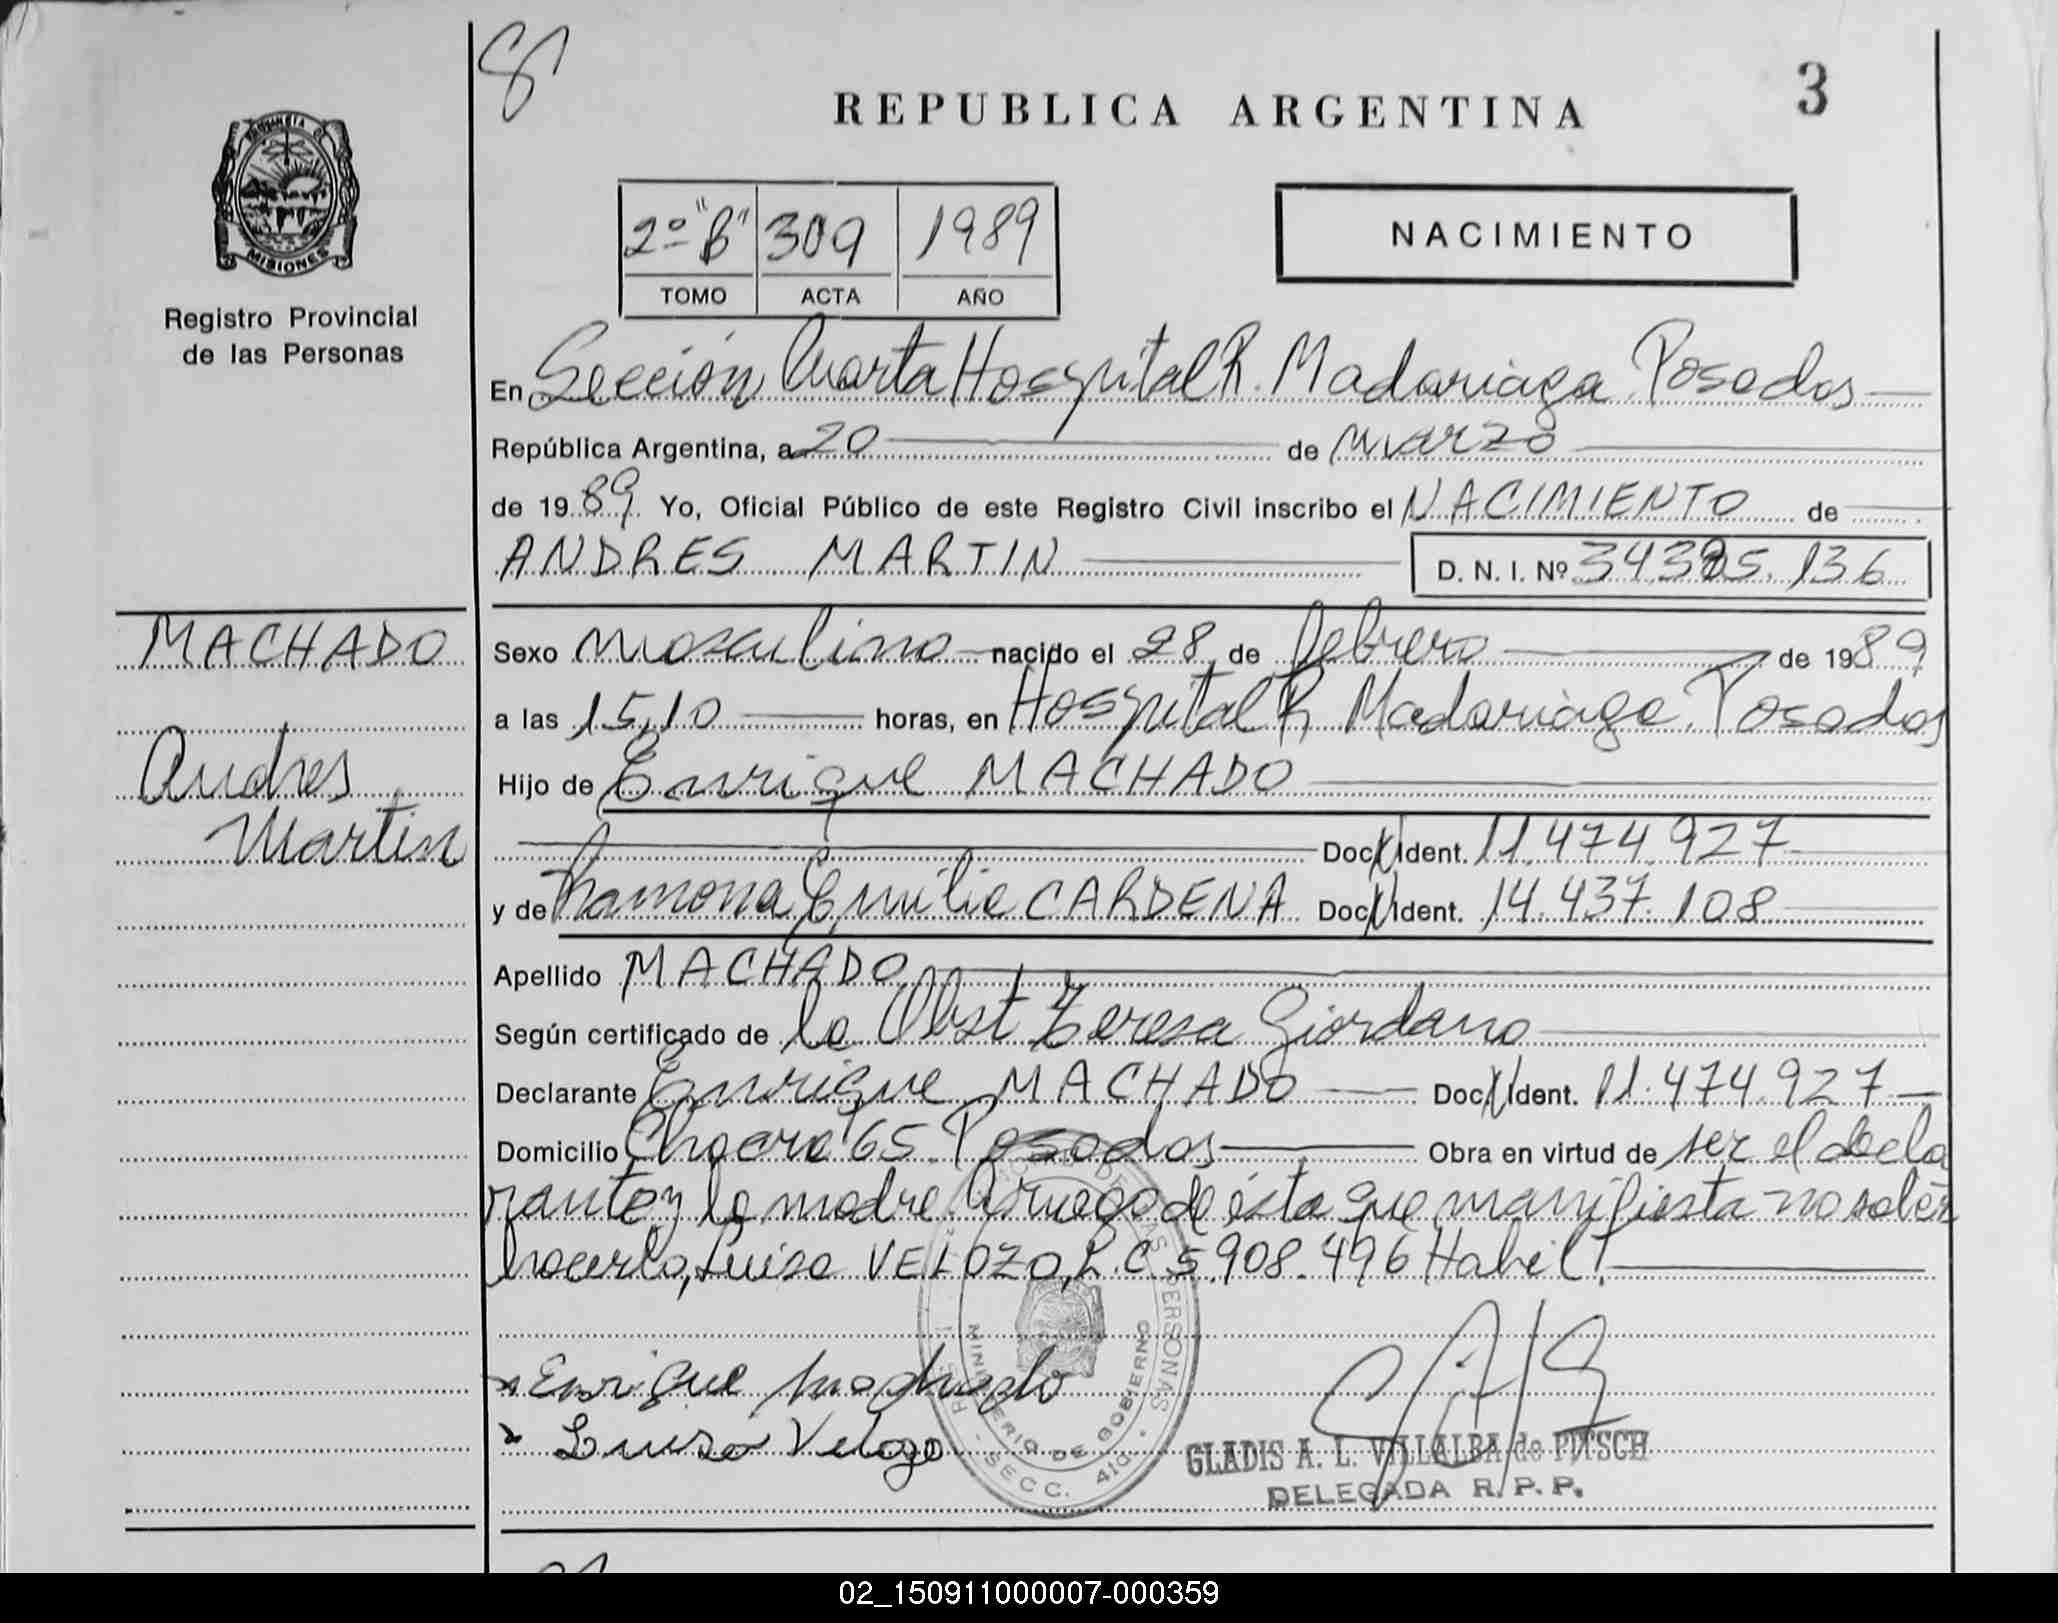 REPUBLICA ARGENTINA
3
PROVINCIA DE
MISIONES
Registro Provincial
de las Personas
2º "B" 309 1989
TOMO ACTA AÑO
NACIMIENTO
En Sección Cuarta Hospital R. Madariaga Posadas
República Argentina, a 20 de marzo
de 1989. Yo, Oficial Público de este Registro Civil inscribo el NACIMIENTO de
ANDRES MARTIN D. N. I. Nº 34.395.136
MACHADO
Andres
Martin
Sexo masculino nacido el 28 de febrero de 1989
a las 15,10 horas, en Hospital R Madariaga. Posadas
Hijo de Enrique MACHADO
Doc. Ident. 11.474.927
y de Ramona Emilia CARDENA Doc. Ident. 14.437.108
Apellido MACHADO
Según certificado de la Obst Teresa Giordano
Declarante Enrique MACHADO Doc. Ident. 11.474.927
Domicilio Chacra 65 Posadas Obra en virtud de ser el decla
rante y la madre a ruego de ésta que manifiesta no saber
hacerlo, Luisa VELOZO, L.C. 5.908.496 Habil!
Enrique machado
Luisa Velozo
DE LAS PERSONAS
MINISTERIO DE GOBIERNO
SECC. 4ta.
GLADIS A. L. VILLALBA de PITSCH
DELEGADA R. P. P.
02_150911000007-000359